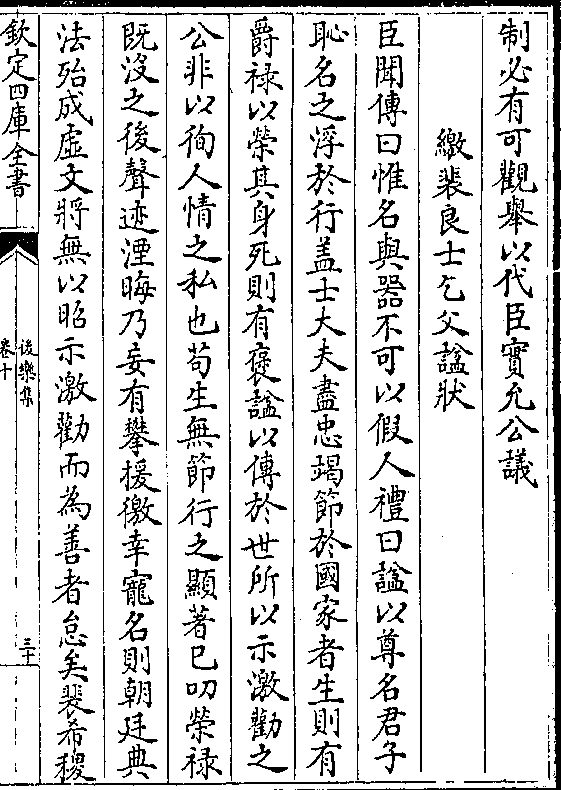 制必有可觀舉以代臣實允公議
繳裴良士乞父諡狀
臣聞傳曰惟名與器不可以假人禮曰諡以尊名君子
恥名之浮於行盖士大夫盡忠竭節於國家者生則有
爵禄以榮其身死則有褒諡以傳於世所以示激勸之
公非以徇人情之私也苟生無節行之顯著已叨榮禄
既沒之後聲迹湮晦乃妄有攀援徼幸寵名則朝廷典
法殆成虛文將無以昭示激勸而為善者怠矣裴希稷
欽定四庫全書
後樂集
卷十
三十